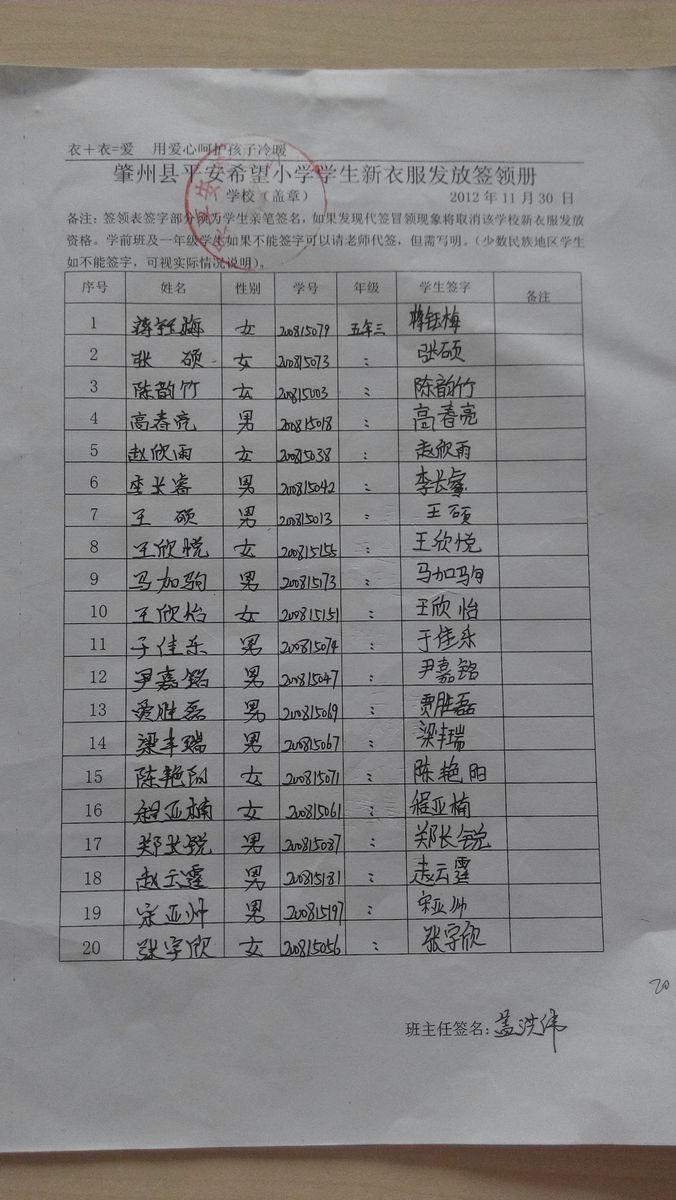 衣＋衣=爱 用爱心呵护孩子冷暖
肇州县平安希望小学学生新衣服发放签领册
学校（盖章） 2012年11月30日
备注：签领表签字部分须为学生亲笔签名，如果发现代签冒领现象将取消该学校新衣服发放
资格。学前班及一年级学生如果不能签字可以请老师代签，但需写明。（少数民族地区学生
如不能签字，可视实际情况说明）。
序号 姓名 性别 学号 年级 学生签字 备注
1 蒋钰梅 女 200815079 五年三 蒋钰梅
2 张硕 女 200815073 : 张硕
3 陈韵竹 女 200815003 : 陈韵竹
4 高春亮 男 200815018 : 高春亮
5 赵欣雨 女 200815038 : 赵欣雨
6 李长睿 男 200815042 : 李长睿
7 王硕 男 200815013 : 王硕
8 王欣悦 女 200815155 : 王欣悦
9 马加驹 男 200815173 : 马加驹
10 王欣怡 女 200815151 : 王欣怡
11 于佳乐 男 200815074 : 于佳乐
12 尹嘉铭 男 200815047 : 尹嘉铭
13 贾胜磊 男 200815069 : 贾胜磊
14 梁丰瑞 男 200815067 : 梁丰瑞
15 陈艳阳 女 200815071 : 陈艳阳
16 程亚楠 女 200815061 : 程亚楠
17 郑长锐 男 200815087 : 郑长锐
18 赵云霆 男 200815181 : 赵云霆
19 宋亚帅 男 200815197 : 宋亚帅
20 张宇欣 女 200815056 : 张宇欣
20
班主任签名：盖洪伟